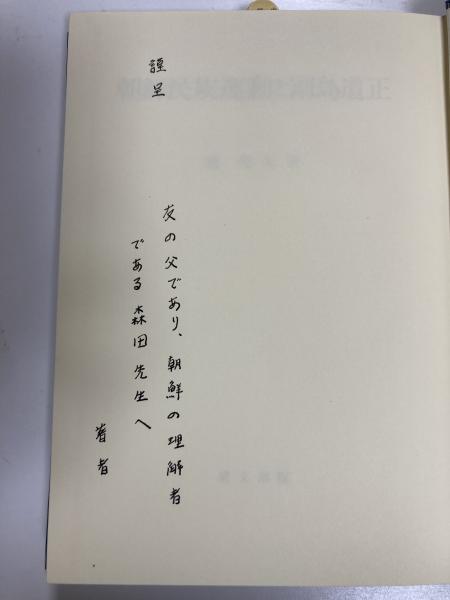 謹呈
友の父であり、朝鮮の理解者
である森田先生へ
著者